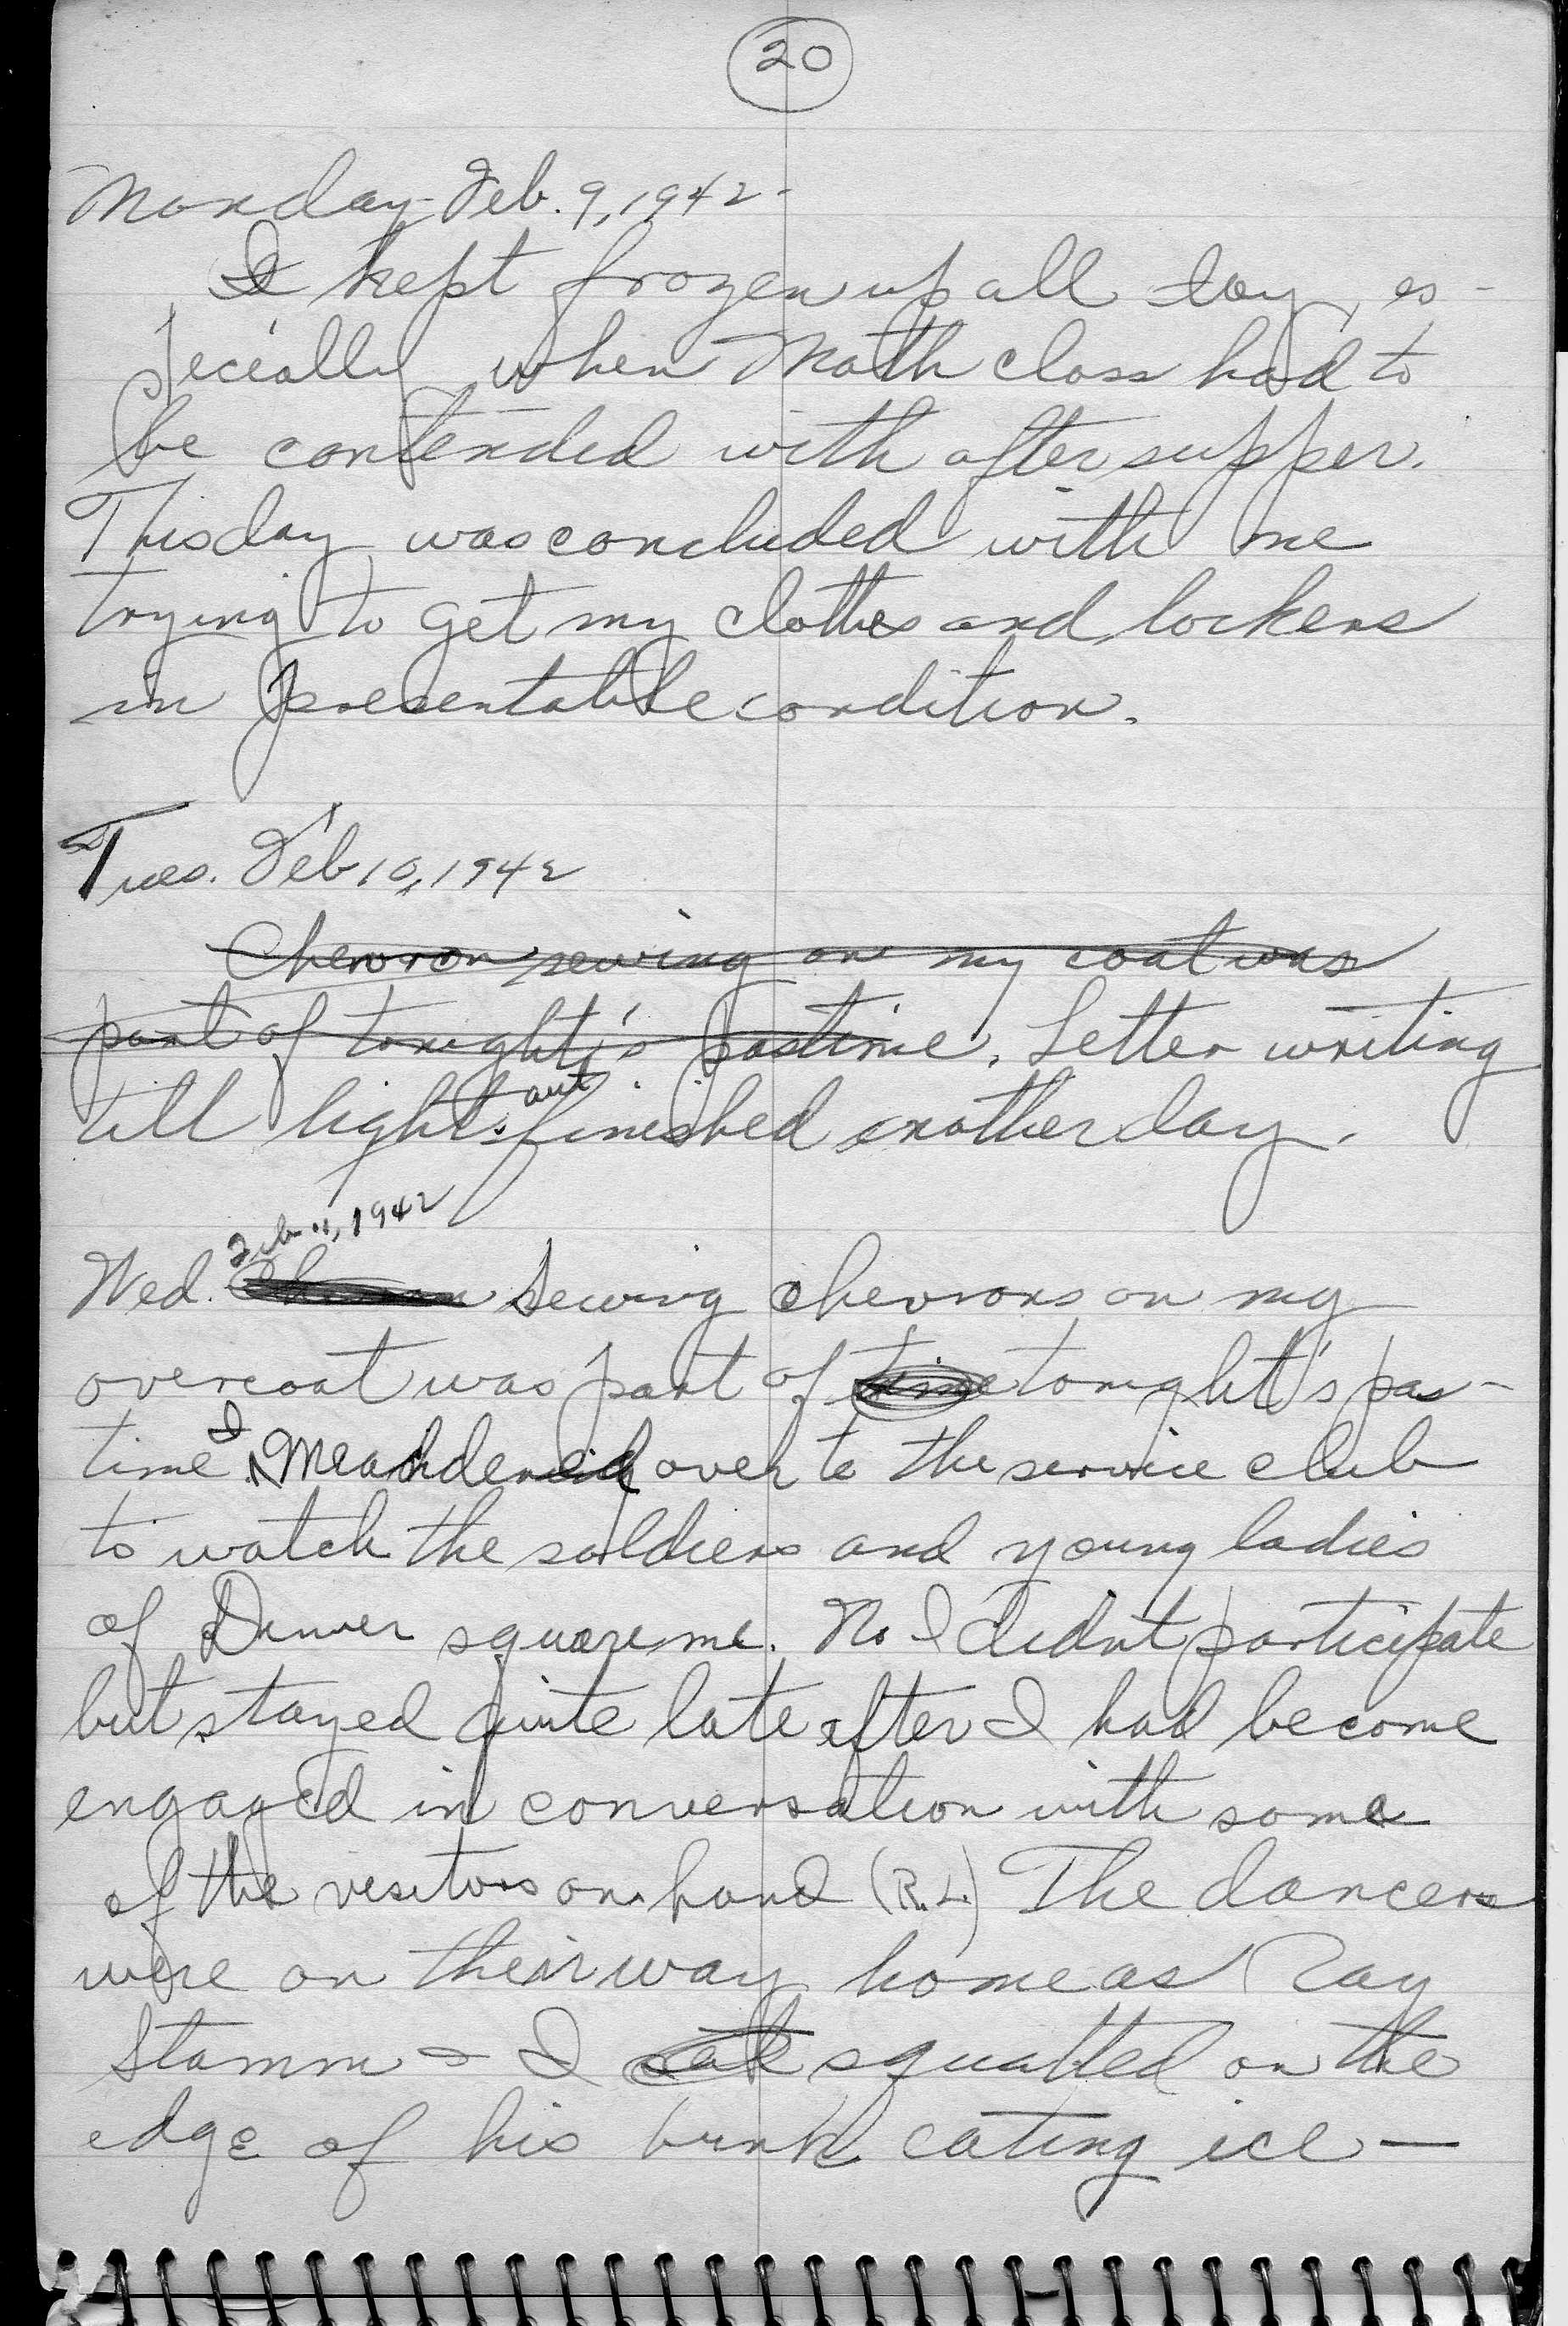 20
Monday Feb. 9, 1942-
I kept frozen up all day, es-
pecially when Math class had to
be contended with after supper.
This day was concluded with me
trying to get my clothes and lockers
in presentable condition.
Tues. Feb 10, 1942
Chevron sewing on my coat was
part of tonight's pastime. Letter writing
till lights out finished another day.
Feb 11, 1942
Wed. Sewing chevrons on my
overcoat was part of time tonight's pas-
time. I Meandered over to the service club
to watch the soldiers and young ladies
of Denver square me. No I didn't participate
but stayed quite late after I had become
engaged in conversation with some
of the visitors on hand (R.L.) The dancers
were on their way home as Ray
Stamm & I sat squatted on the
edge of his bunk eating ice—